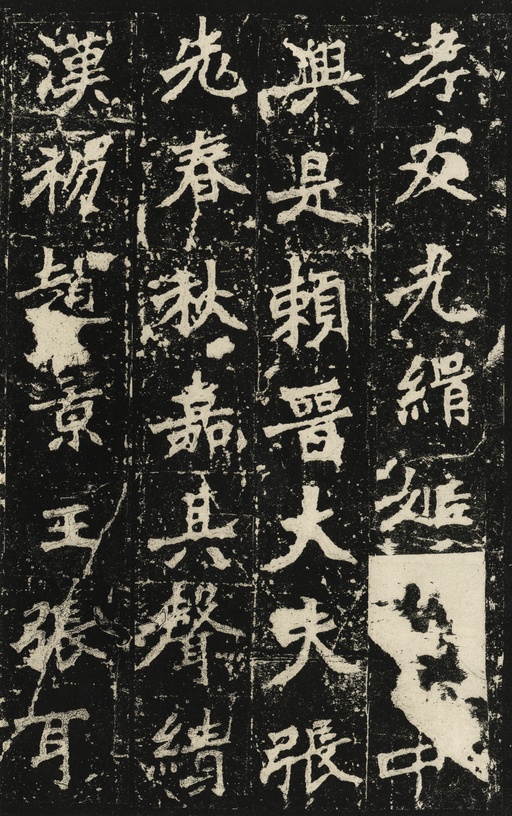 孝友光緝姬中
興是賴晉大夫張
老春秋嘉其聲績
漢初趙景王張耳